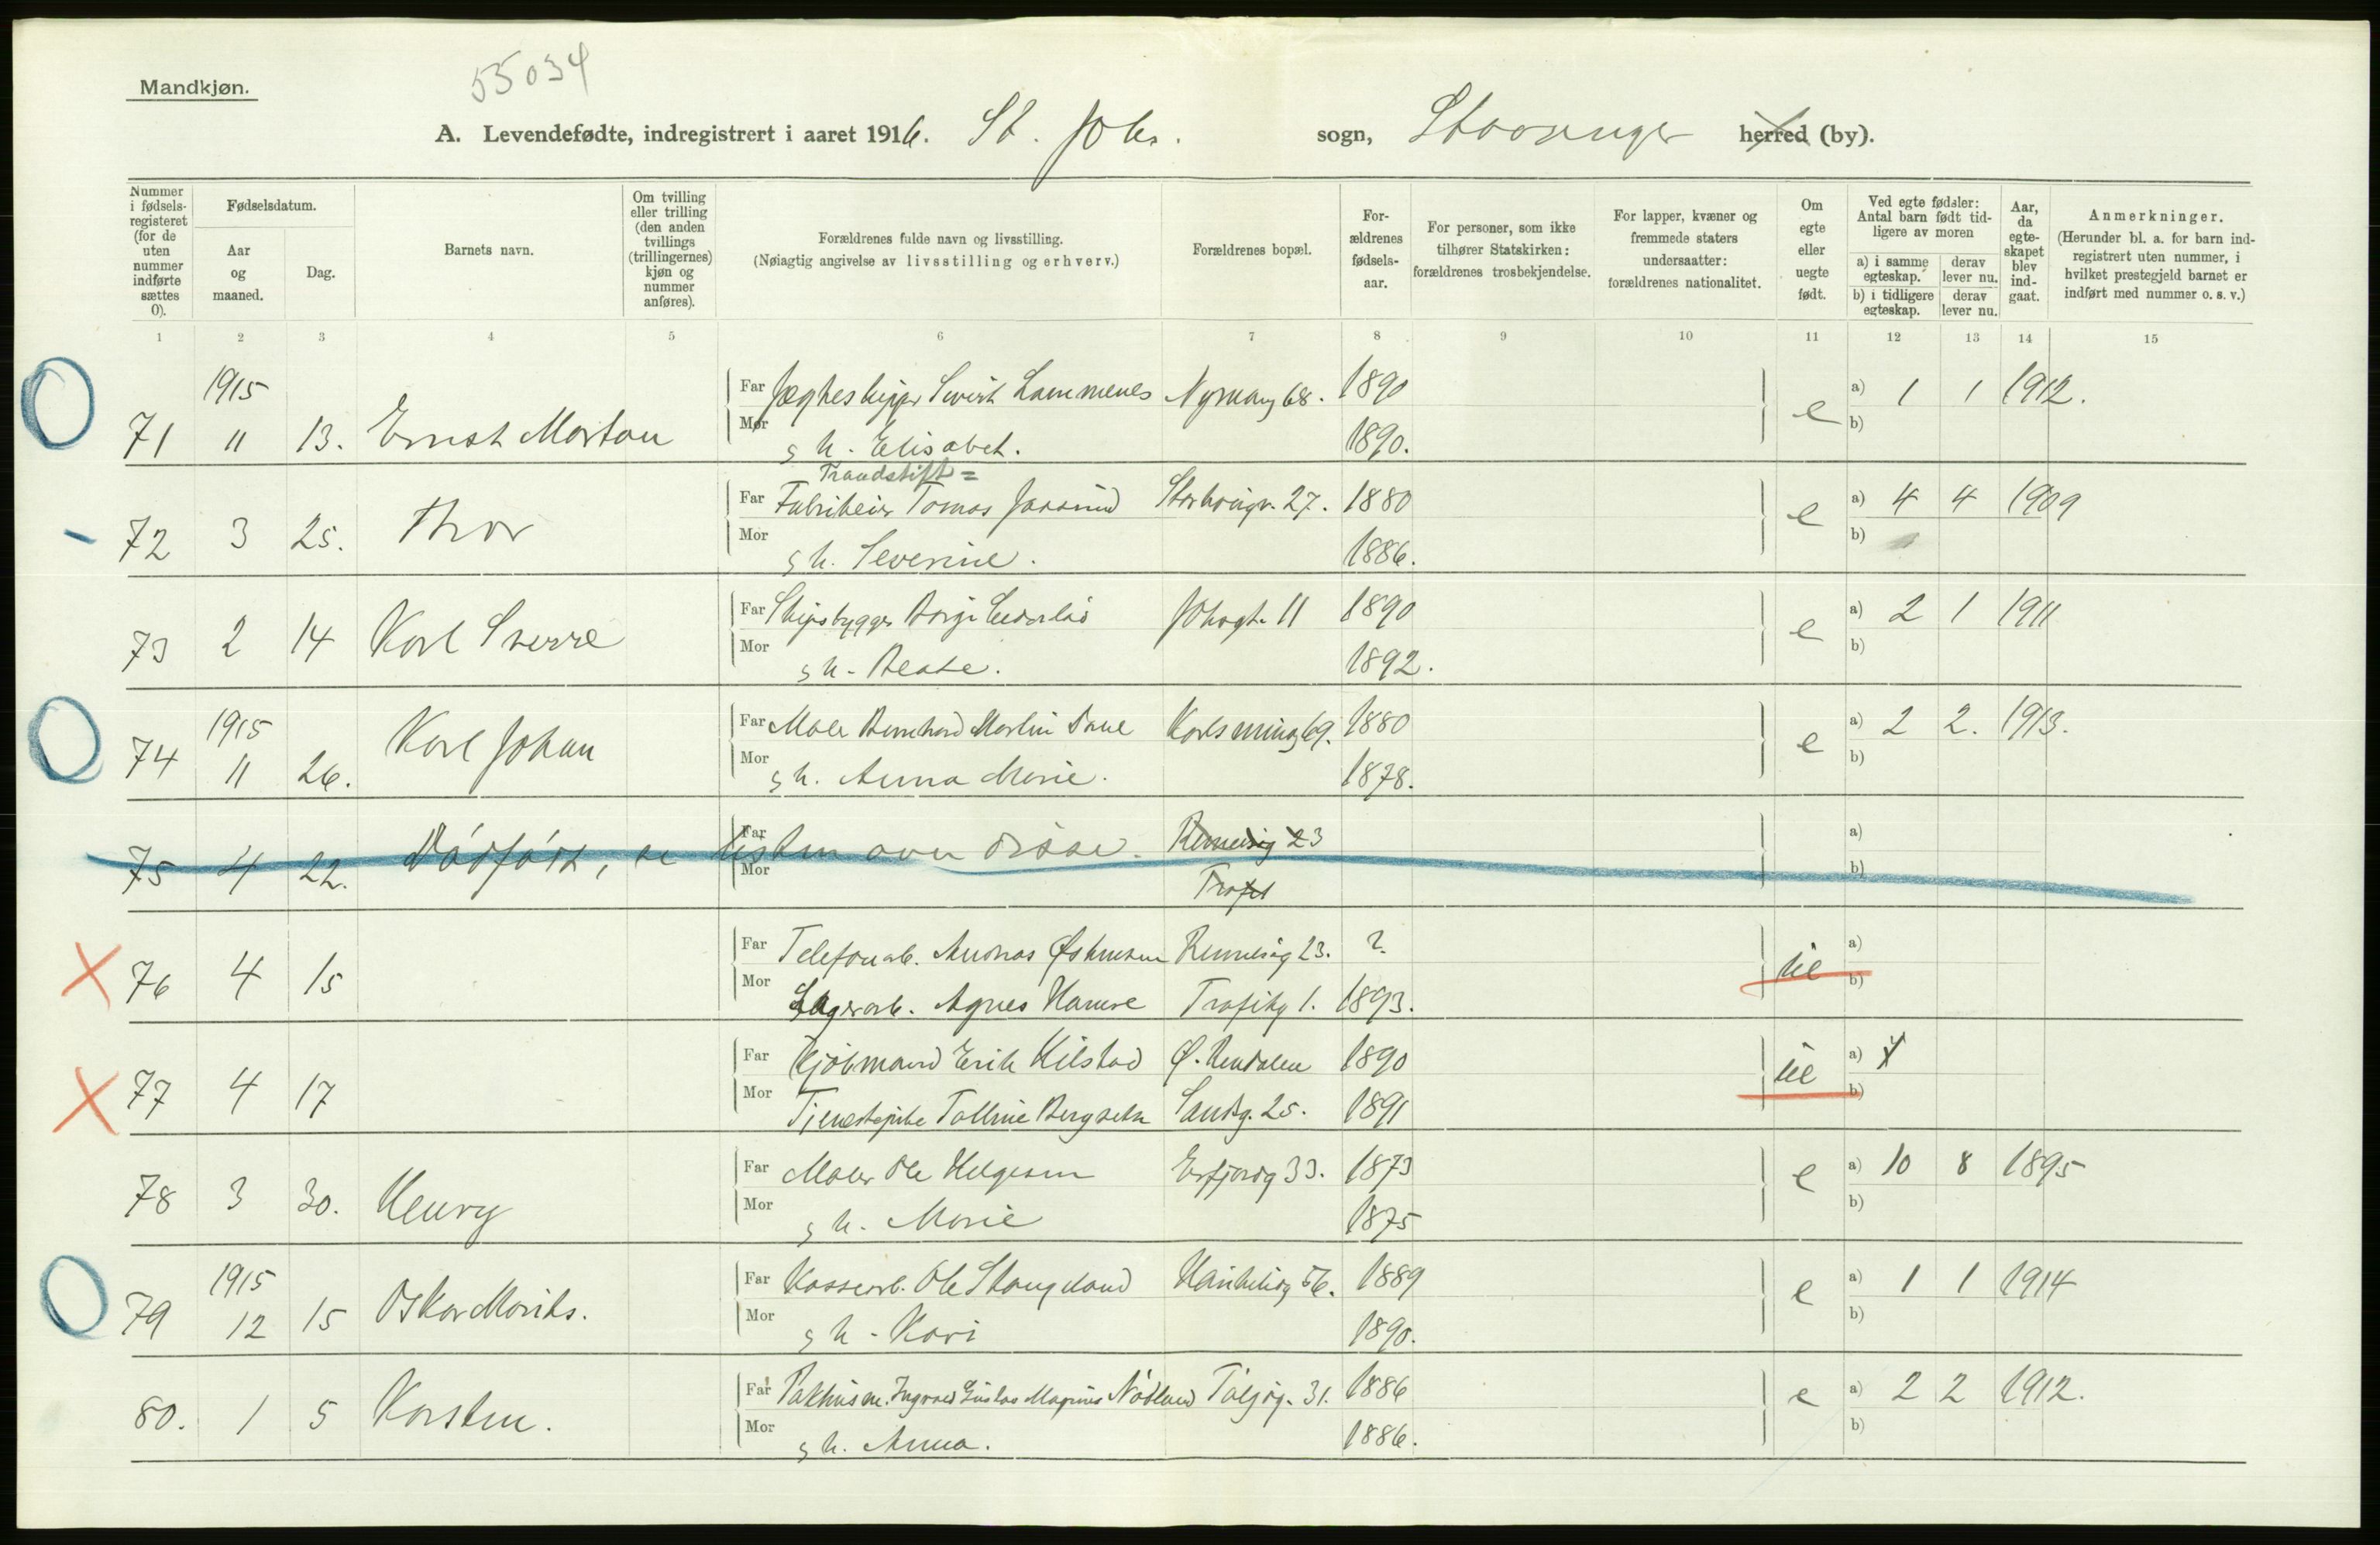 Mandkjøn.
55034
A. Levendefødte, indregistrert i aaret 1916. St. Johs. sogn, Stavanger herred (by).
Nummer i fødselsregisteret (for de uten nummer indførte sættes 0).
Fødselsdatum.
Aar og maaned.
Dag.
Barnets navn.
Om tvilling eller trilling (den anden tvillings (trillingernes) kjøn og nummer anføres).
Forældrenes fulde navn og livsstilling.
(Nøiagtig angivelse av livsstilling og erhverv.)
Forældrenes bopæl.
Forældrenes fødselsaar.
For personer, som ikke tilhører Statskirken: forældrenes trosbekjendelse.
For lapper, kvæner og fremmede staters undersaatter: forældrenes nationalitet.
Om egte eller uegte født.
Ved egte fødsler: Antal barn født tidligere av moren
a) i samme egteskap. derav lever nu.
b) i tidligere egteskap. derav lever nu.
Aar, da egteskapet blev indgaat.
Anmerkninger.
(Herunder bl. a. for barn indregistrert uten nummer, i hvilket prestegjeld barnet er indført med nummer o. s. v.)
1 2 3 4 5 6 7 8 9 10 11 12 13 14 15
1915 Far Sivert 68. 1890 a) 1 1 1912.
71 11 13. Ernst Mortan Mor h. Elisabet. 1890. e b)
Far Tomas 27. 1880 a) 4 4 1909
72 3 25. Thor Mor h. Severine. 1886. e b)
Far Skipsbygger 11 1890 a) 2 1 1911
73 2 14 Karl Sverre Mor h. Beate. 1892. e b)
1915 Far Maler Bernhard Martin 69. 1880 a) 2 2. 1913.
74 11 26. Karl Johan Mor h. Anna Marie. 1878. e b)
75 4 22. Dødfødt, se listen over disse. 23
Far Mor a) b)
Far Telefonarb. Andreas 23. ? a)
76 4 15 Mor Lagerarb. Agnes Hamre Trafikg 1. 1893. ue b)
Far Kjøbmand Erik 1890 a)
77 4 17 Mor Tjenestepike Sandg. 25. 1891 ue b)
Far Maler Ole Helgesen Erfjordg 33. 1873 a) 10 8 1895
78 3 30. Henry Mor h. Marie 1875 e b)
1915 Far Ole Stangeland 56. 1889 a) 1 1 1914
79 12 15 Oskar Moritz. Mor h. Kari 1890. e b)
Far Pakhusm. Ingvald Gustav Magnus Nødland 31. 1886 a) 2 2 1912.
80. 1 5 Karsten. Mor h. Anna. 1886. e b)